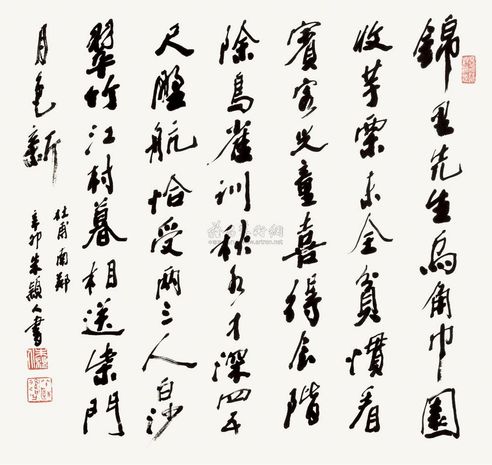 錦里先生烏角巾園
收芋栗未全貧慣看
賓客兒童喜得食階
除鳥雀馴秋水才深四五
尺野航恰受兩三人白沙
翠竹江村暮相送柴門
月色新
杜甫南鄰
辛卯朱穎人書
www.artron.net